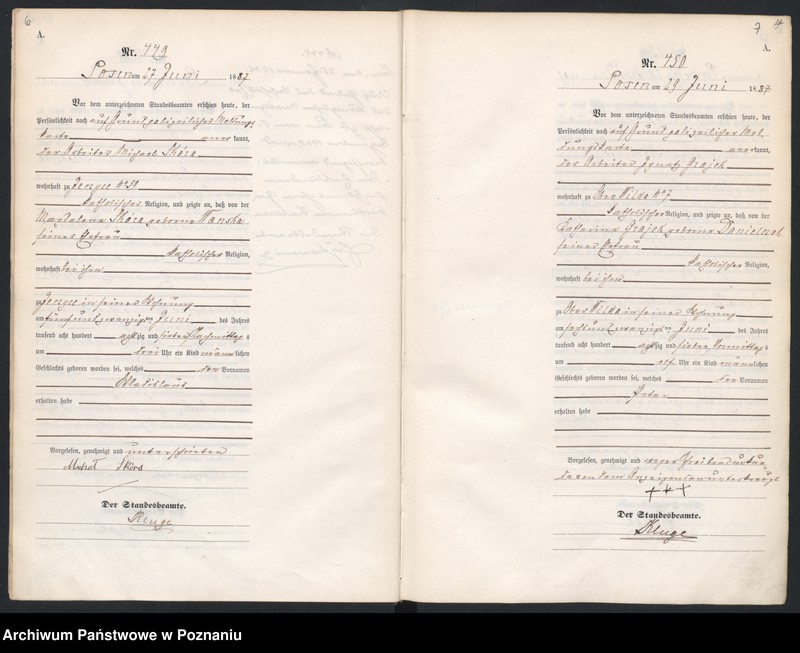 6
A.
Nr. 449
Posen am 27 Juni 1887
Vor dem unterzeichneten Standesbeamten erschien heute, der
Persönlichkeit nach auf Grund polizeilicher Meldungs
karte aner kannt,
der Arbeiter Michael Skóra
wohnhaft zu Jerzyce No 51
katholischer Religion, und zeigte an, daß von der
Magdalena Skóra geborne
seiner Ehefrau
katholischer Religion,
wohnhaft bei ihm
zu Jerzyce in seiner Wohnung
am fünf und zwanzigsten Juni des Jahres
tausend acht hundert achtzig und sieben Nachmittags
um Uhr ein Kind männlichen
Geschlechts geboren worden sei, welches den Vornamen
Wladislaus
erhalten habe
Vorgelesen, genehmigt und unterschrieben
Michał Skóra
Der Standesbeamte.
Kluge
7 4
A.
Nr. 450
Posen am 29 Juni 1887
Vor dem unterzeichneten Standesbeamten erschien heute, der
Persönlichkeit nach auf Grund polizeilicher Mel
dungskarte aner kannt,
der Arbeiter Ignatz Grajek
wohnhaft zu Ober Wilda No 7
katholischer Religion, und zeigte an, daß von der
Katharina Grajek geborne
seiner Ehefrau
katholischer Religion,
wohnhaft bei ihm
zu Ober Wilda in seiner Wohnung
am sechs und zwanzigsten Juni des Jahres
tausend acht hundert achtzig und sieben Vormittags
um elf Uhr ein Kind männlichen
Geschlechts geboren worden sei, welches den Vornamen
Peter
erhalten habe
Vorgelesen, genehmigt und wegen Schreibensunkun
de von dem Anzeigenden unterkreuzt
+++
Der Standesbeamte.
Kluge
Archiwum Państwowe w Poznaniu